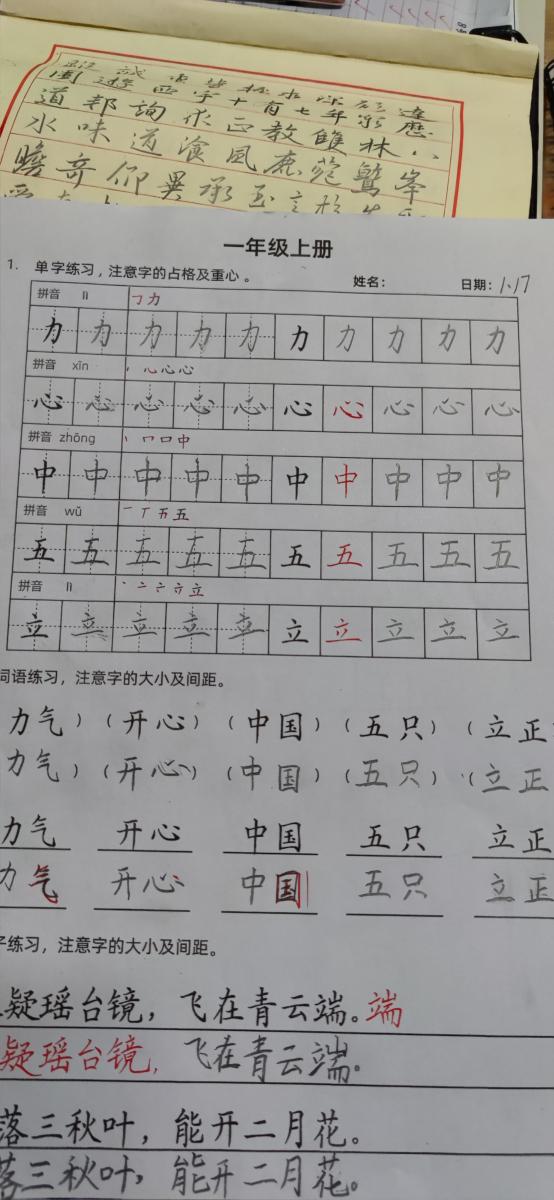 道邦詢求正教雙林八
水味道湌風鹿菀鷲峯
瞻奇仰異承至言於先
一年级上册
1. 单字练习，注意字的占格及重心。 姓名： 日期：1.17
拼音 lì ㇆力
力力力力力力力力力力
拼音 xīn 心心心
心心心心心心心心心心
拼音 zhōng 丨口口中
中中中中中中中中中中
拼音 wǔ 一丅五五
五五五五五五五五五五
拼音 lì 丶亠立
立立立立立立立立立立
词语练习，注意字的大小及间距。
力气）（开心）（中国）（五只）（立正
力气）（开心）（中国）（五只）（立正
力气 开心 中国 五只 立正
力气 开心 中国 五只 立正
子练习，注意字的大小及间距。
疑瑶台镜，飞在青云端。端
疑瑶台镜，飞在青云端。
落三秋叶，能开二月花。
落三秋叶，能开二月花。